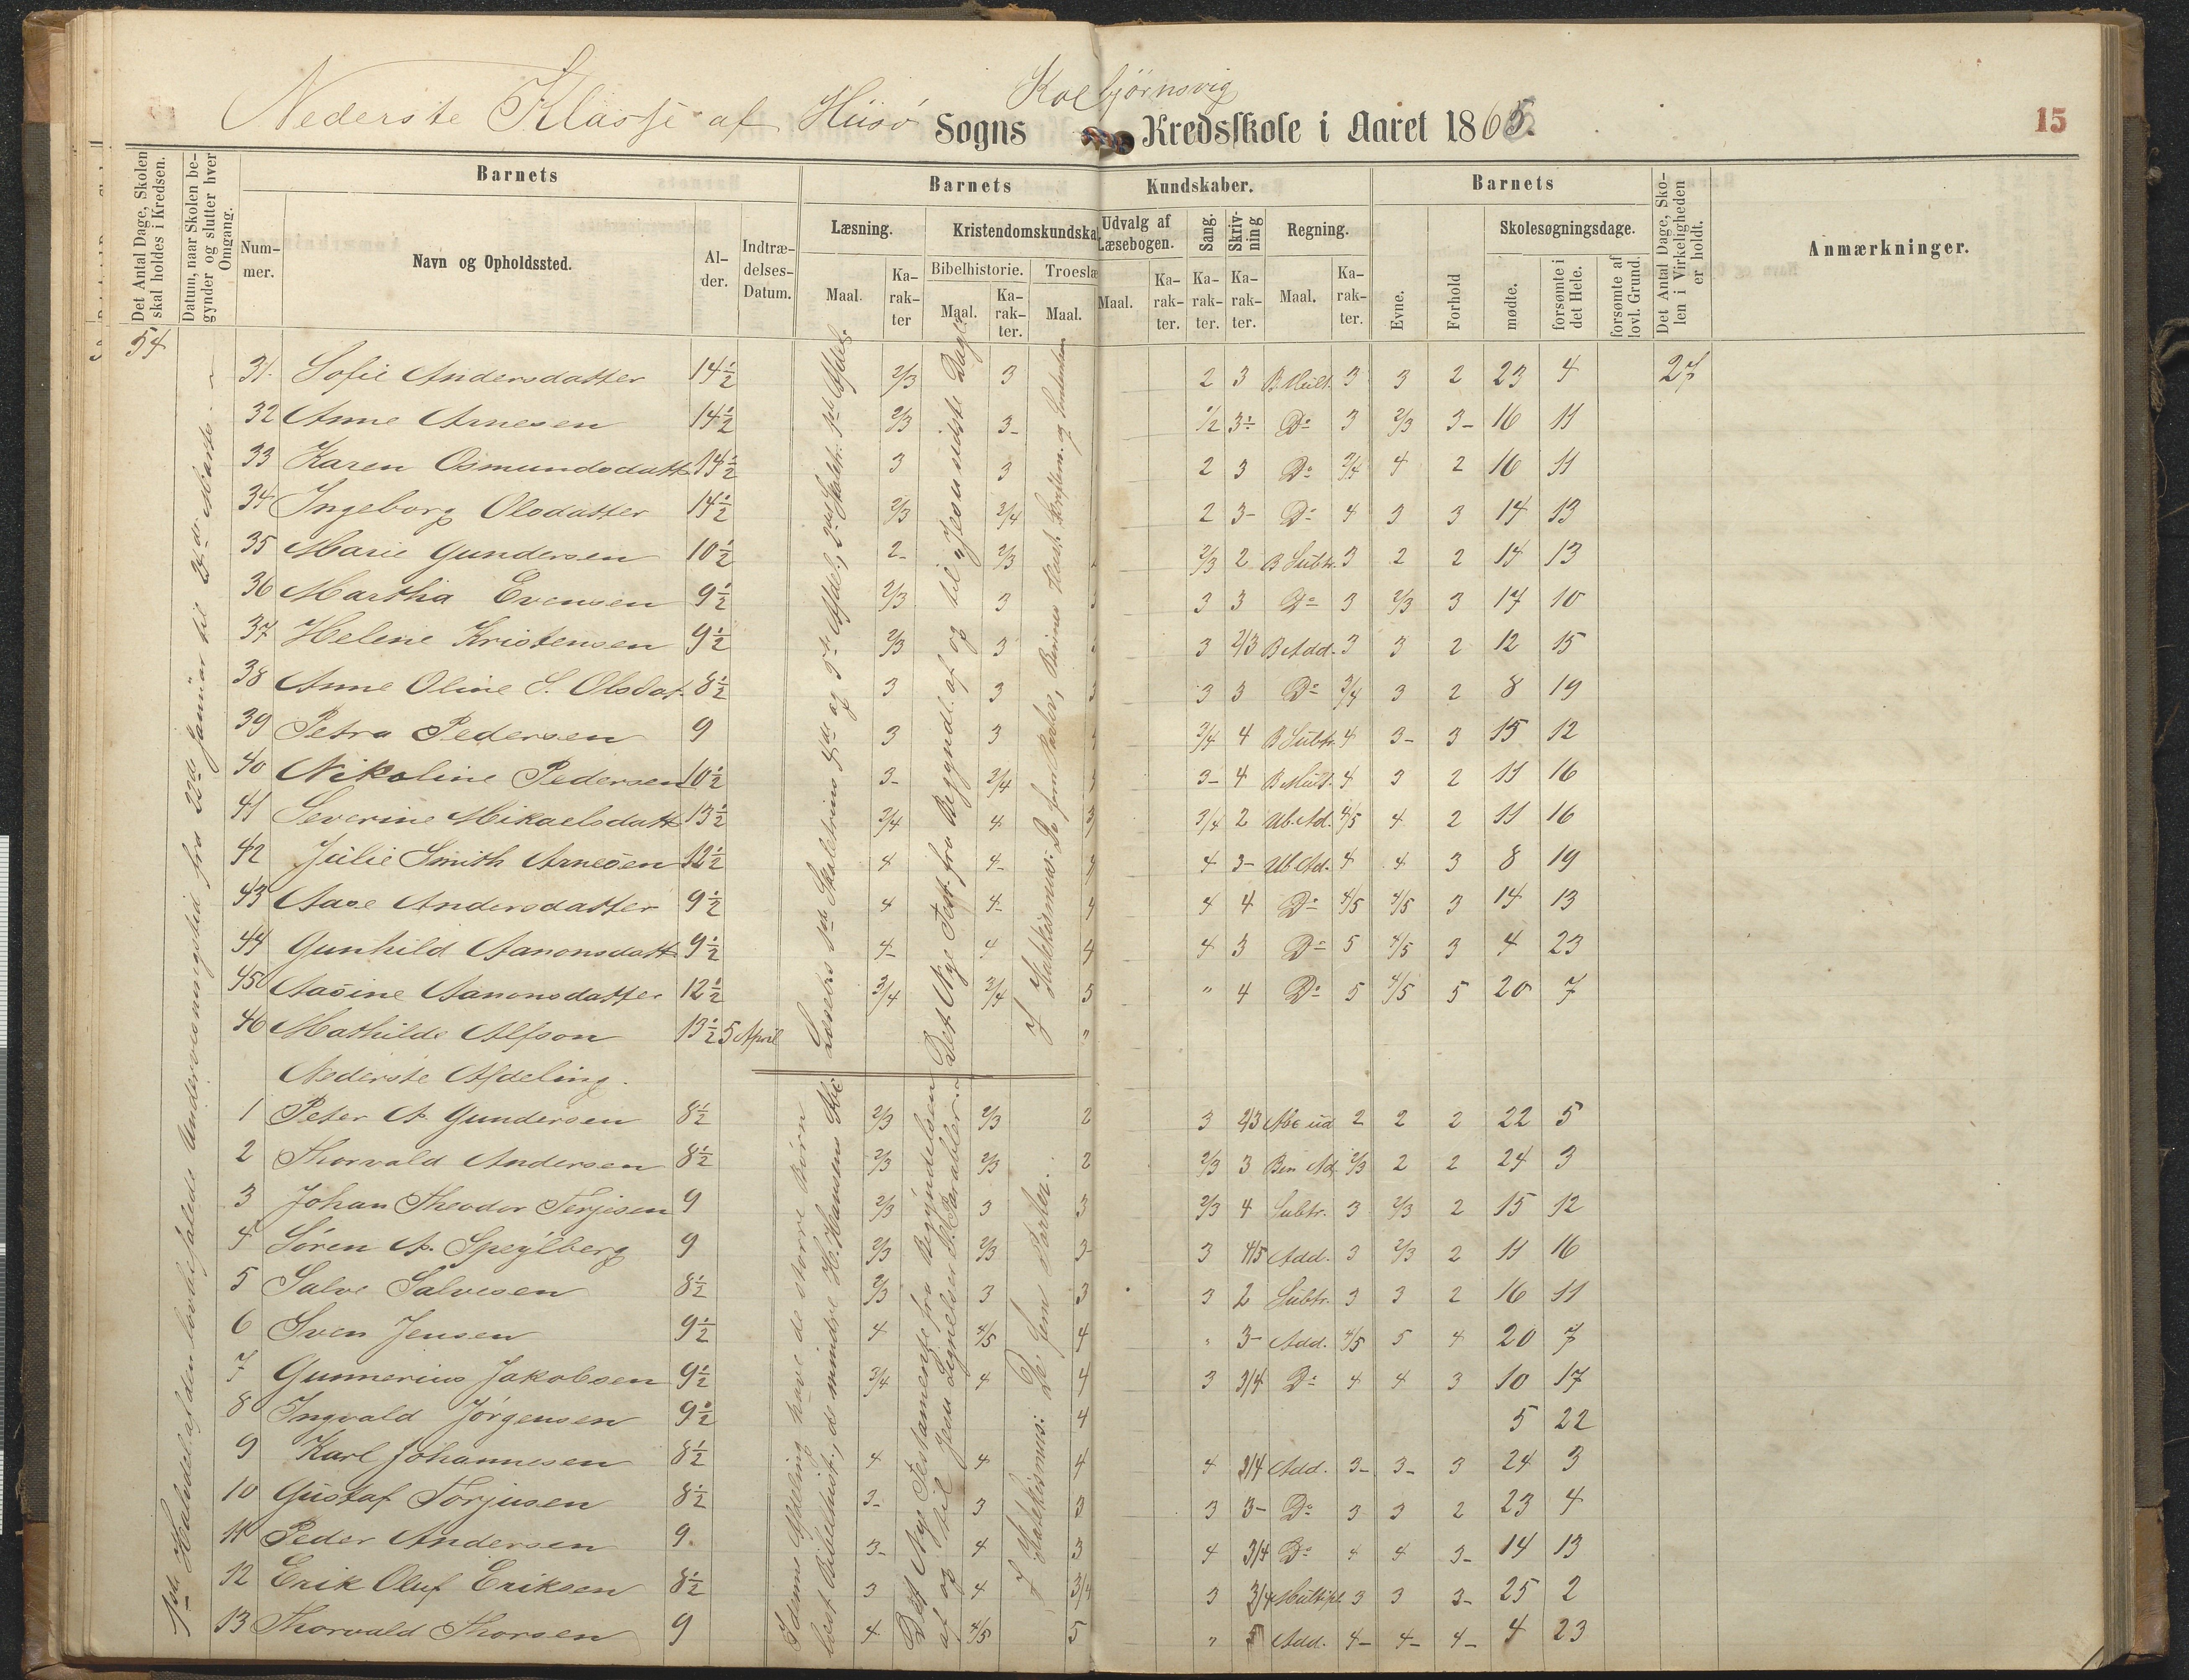 Nederste Klasse af Hisø Sogns Kolbjørnsvig Kredsskole i Aaret 1865.
15
Det Antal Dage, Skolen skal holdes i Kredsen.
Datum, naar Skolen begynder og slutter hver Omgang.
Barnets
Nummer.
Navn og Opholdssted.
Alder.
Indtrædelses-Datum.
Barnets Kundskaber.
Læsning.
Maal.
Karakter
Kristendomskundska
Bibelhistorie.
Maal.
Karakter.
Troeslæ
Maal.
Udvalg af Læsebogen.
Maal.
Karakter.
Sang.
Karakter.
Skrivning
Karakter.
Regning.
Maal.
Karakter.
Barnets
Evne.
Forhold
Skolesøgningsdage.
mødte.
forsømte i det Hele.
forsømte af lovl. Grund.
Det Antal Dage, Skolen i Virkeligheden er holdt.
Anmærkninger.
54
1ste Halvdel af den lovbefalede Undervisningstid fra 22de Januar til 23de Marts
31. Sofie Andersdatter 14½ 2/3 3 2 3 B. Mult. 3 3 2 23 4 27
32 Anne Arnesen 14½ 2/3 3- 1/2 3÷ Do 3 2/3 3- 16 11
33 Karen Osmundsdatt 14½ 3 3 2 3 Do 3/4 4 2 16 11
34 Ingeborg Olsdatter 14½ 2/3 3/4 2 3- Do 4 3 3 14 13
35 Marie Gundersen 10½ 2- 2/3 2/3 2 B Subtr. 3 2 2 14 13
36 Martha Evensen 9½ 2/3 3 3 3 Do 3 2/3 3 17 10
37 Helene Kristensen 9½ 2/3 3 3 2/3 B Add. 3 3 2 12 15
38 Anne Oline S. Olsdat. 8½ 3 3 3 3 3 Do 3/4 3 2 8 19
39 Petra Pedersen 9 3 3 3/4 4 B Subtr. 4 3- 3 15 12
40 Nikoline Pedersen 10½ 3- 3/4 3- 4 B Mult. 4 3 2 11 16
41 Severine Mikaelsdatt 13½ 3/4 4 3 3/4 2 Ub. Ad. 4/5 4 2 11 16
42 Julie Smith Arnesen 12½ 4 4- 4 3- Ub Ad. 4 4 3 8 19
43 Aase Andersdatter 9½ 4 4- 4 4 4 Do 4/5 4/5 3 14 13
44 Gunhild Aanonsdatt 9½ 4- 4 4 4 3 Do 5 4/5 3 4 23
45 Aasine Aanonsdatter 12½ 3/4 3/4 5 " 4 Do 5 4/5 5 20 7
46 Mathilde Alfson 13½ 5 April "
Læsebs 1ste Skoletrins 4de og 5te Afdel., 2det Skoletr. 1ste Afdel.
Det Nye Test. fra Begyndl. af og til "Jesu sidste Dage"
I Katekismus: De fem Parter, Bønnes
Nederste Afdeling.
1 Peter A. Gundersen 8½ 2/3 2/3 2 3 2/3 2 2 2 22 5
2 Thorvald Andersen 8½ 2/3 2/3 2 2/3 3 Ben Ad. 2/3 2 2 24 3
3 Johan Theodor Terjesen 9 2/3 3 3 2/3 4 Subtr. 3 2/3 2 15 12
4 Søren A. Speilberg 9 2/3 2/3 3- 3 4/5 Add. 3 2/3 2 11 16
5 Salve Salvesen 8½ 2/3 3 3 3 2 Subtr. 3 3 2 16 11
6 Sven Jensen 9½ 4 4/5 4 " 3- Add. 4/5 5 4 20 7
7 Gunnerius Jakobsen 9½ 3/4 4 4 3 3/4 Do 4 4 3 10 17
8 Ingvald Jørgensen 9½ 4 5 22
9 Karl Johannesen 8½ 4 4 4 4 3/4 Add. 3- 3- 3 24 3
10 Gustaf Torjusen 8½ 3- 3 3 3 3- Do 3 3 2 23 4
11 Peder Andersen 9. 3- 4 3 4 3/4 Do 4 4 3- 14 13
12 Erik Oluf Eriksen 8½ 3 4 3/4 3 3/4 Multipl. 3 3 3- 25 2
13 Thorvald Thorsen 9 4 4/5 5 " 5 Add. 4- 4- 4- 4 23
I denne Afdeling have de større Børn
læst Bibelhist., de mindre H. Hansens Abc
Det Nye Testamente fra Begyndelsen
af og til Jesu Lignelser l. Parabler.
I Katekismus: De fem Parter.